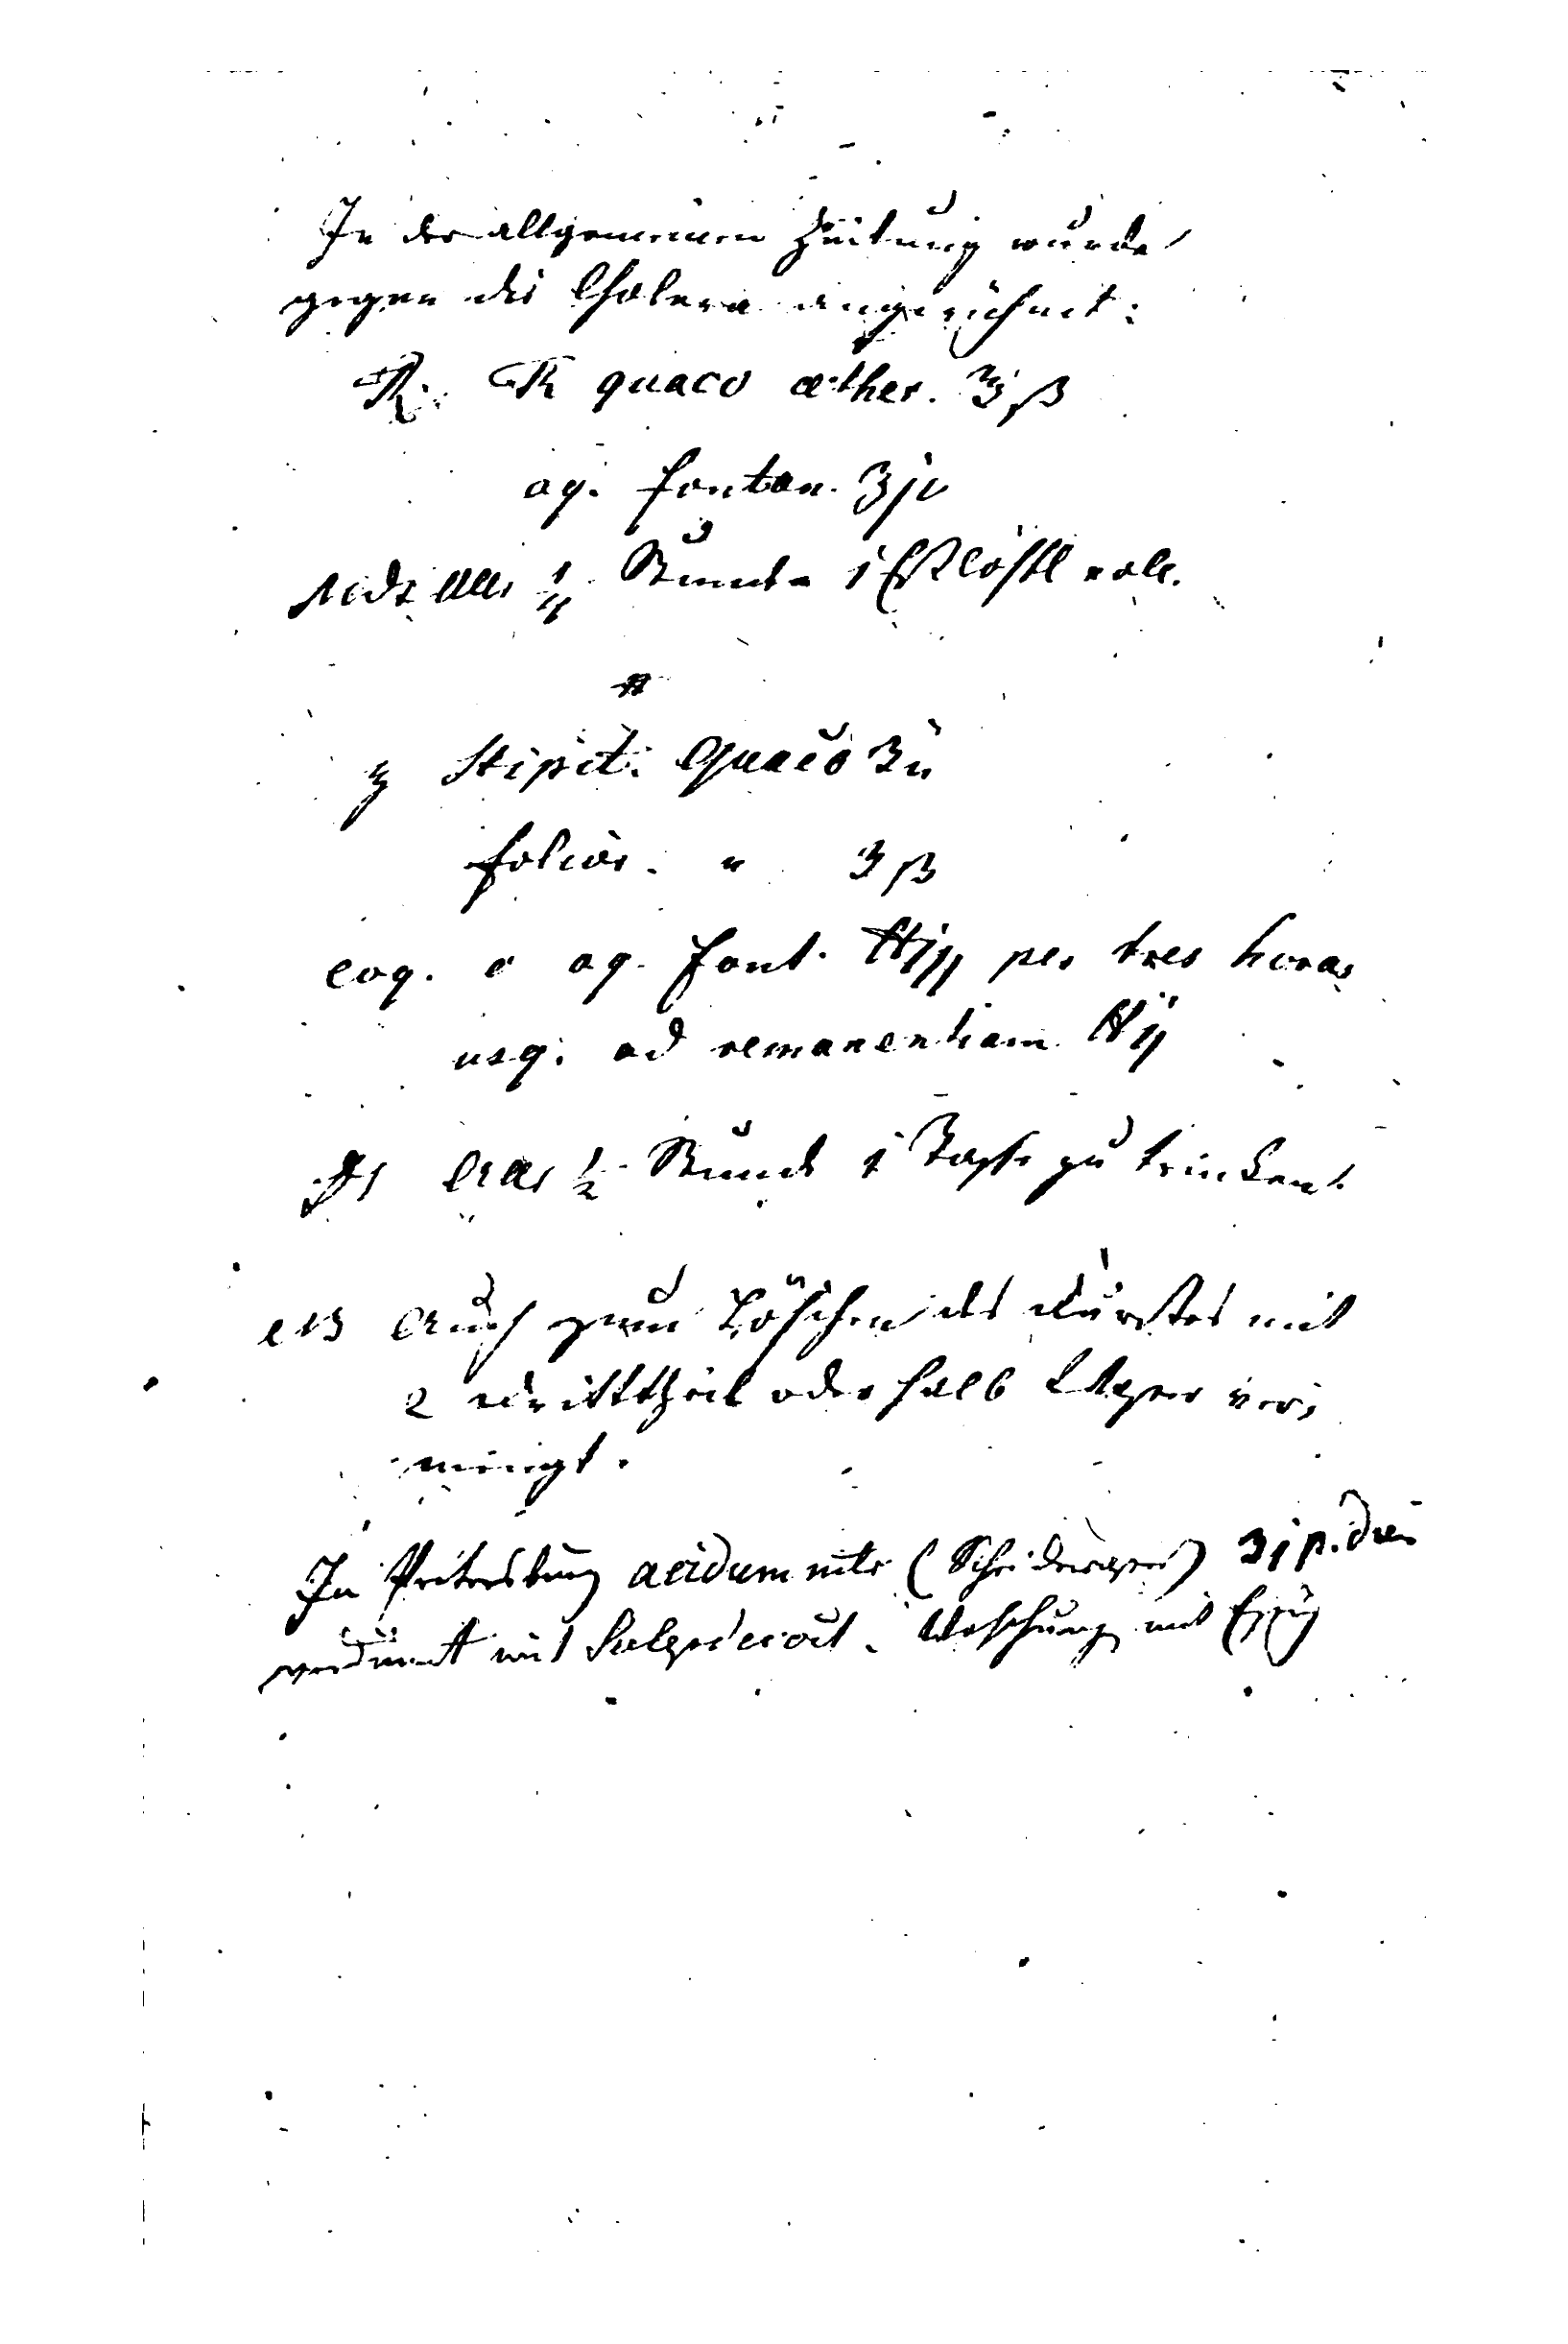 In der allgemeinen Zeitung wurde
gegen die Cholera angerühmt:
℞. Tr quaco æther. ℥ß
aq. fontan. ℥jv
alle ¼ Stunde 1 Eßlöffel voll.
℞ Stipit. Quaco ℥ij
folior. " ℥ß
coq. c aq. font. ℔iij per tres horas
usq. ad remanentiam ℔ij
Alle ½ Stunde 1 Tasse zu trinken.
Auch zum Löschen des Durstes mit
2 Dritttheil oder halb Wasser ver=
mengt.
In Petersburg acidum nitr (Scheidewasser) ʒj p. dosi
verdünnt mit Salepdecoct. Waschung mit Essig